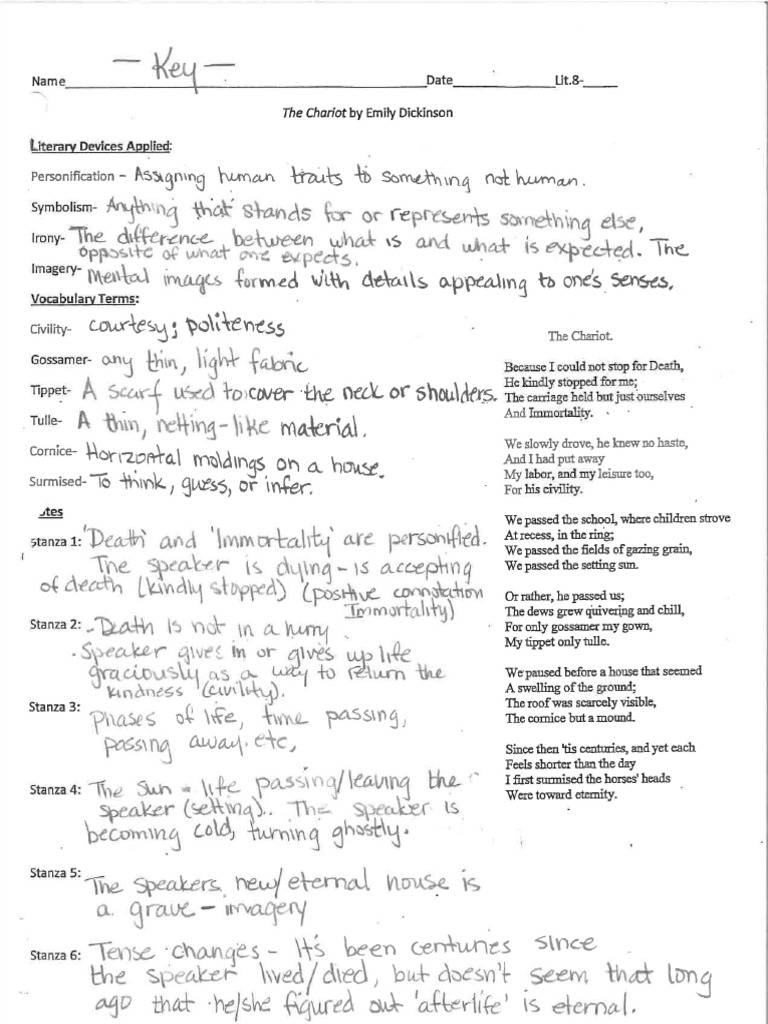 — Key —
Name Date Lit.8-
The Chariot by Emily Dickinson
Literary Devices Applied:
Personification - Assigning human traits to something not human.
Symbolism- Anything that stands for or represents something else,
Irony- The difference between what is and what is expected. The
opposite of what one expects.
Imagery- Mental images formed with details appealing to one's senses.
Vocabulary Terms:
Civility- courtesy; politeness
Gossamer- any thin, light fabric
Tippet- A scarf used to cover the neck or shoulders.
Tulle- A thin, netting-like material.
Cornice- Horizontal moldings on a house.
Surmised- To think, guess, or infer.
tes
Stanza 1: 'Death' and 'Immortality' are personified.
The speaker is dying - is accepting
of death (kindly stopped) (positive connotation
Immortality)
Stanza 2: - Death is not in a hurry
. Speaker gives in or gives up life
graciously as a way to return the
kindness (civility).
Stanza 3: Phases of life, time passing,
passing away. etc,
Stanza 4: The Sun = life passing/leaving the
speaker (setting).. The speaker is
becoming cold, turning ghostly.
Stanza 5: The speakers new/eternal house is
a grave - imagery
Stanza 6: Tense changes - It's been centuries since
the speaker lived/died, but doesn't seem that long
ago that he/she figured out 'afterlife' is eternal.
The Chariot.
Because I could not stop for Death,
He kindly stopped for me;
The carriage held but just ourselves
And Immortality.
We slowly drove, he knew no haste,
And I had put away
My labor, and my leisure too,
For his civility.
We passed the school, where children strove
At recess, in the ring;
We passed the fields of gazing grain,
We passed the setting sun.
Or rather, he passed us;
The dews grew quivering and chill,
For only gossamer my gown,
My tippet only tulle.
We paused before a house that seemed
A swelling of the ground;
The roof was scarcely visible,
The cornice but a mound.
Since then 'tis centuries, and yet each
Feels shorter than the day
I first surmised the horses' heads
Were toward eternity.